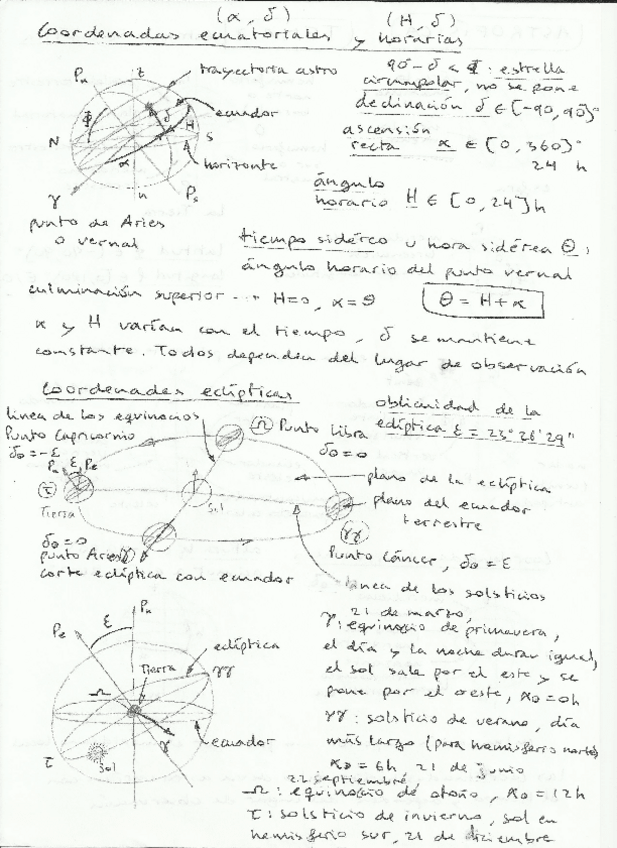 (α, δ) (H, δ)
Coordenadas ecuatoriales y horarias
Pn z trayectoria astro
ecuador
Φ δ H
N S
α horizonte
γ n Ps
punto de Aries
o vernal
90-δ < Φ : estrella
circumpolar, no se pone
declinación δ ∈ [-90, 90]°
ascensión
recta α ∈ [0, 360]°
24 h
ángulo
horario H ∈ [0, 24]h
tiempo sidéreo u hora sidérea Θ:
ángulo horario del punto vernal
culminación superior --→ H=0, α=Θ
Θ = H+α
α y H varían con el tiempo, δ se mantiene
constante. Todos dependen del lugar de observación
Coordenadas eclípticas
oblicuidad de la
eclíptica ε = 23° 26' 29"
línea de los equinocios
Punto Capricornio
δ⊙=-ε
Pn ε Pe
Tierra
Punto Libra
δ⊙=0
Sol
plano de la eclíptica
plano del ecuador
terrestre
δ⊙=0
punto Aries (γ)
corte eclíptica con ecuador
Punto Cáncer, δ⊙=ε
línea de los solsticios
Pe ε Pn
eclíptica
Tierra
γ
ecuador
Sol
21 de marzo,
γ: equinocio de primavera,
el día y la noche duran igual,
el sol sale por el este y se
pone por el oeste, α⊙=0h
γγ: solsticio de verano, día
más largo (para hemisferio norte)
α⊙=6h, 21 de junio
22 septiembre
Ω: equinocio de otoño, α⊙=12h
τ: solsticio de invierno, sol en
hemisferio sur, 21 de diciembre